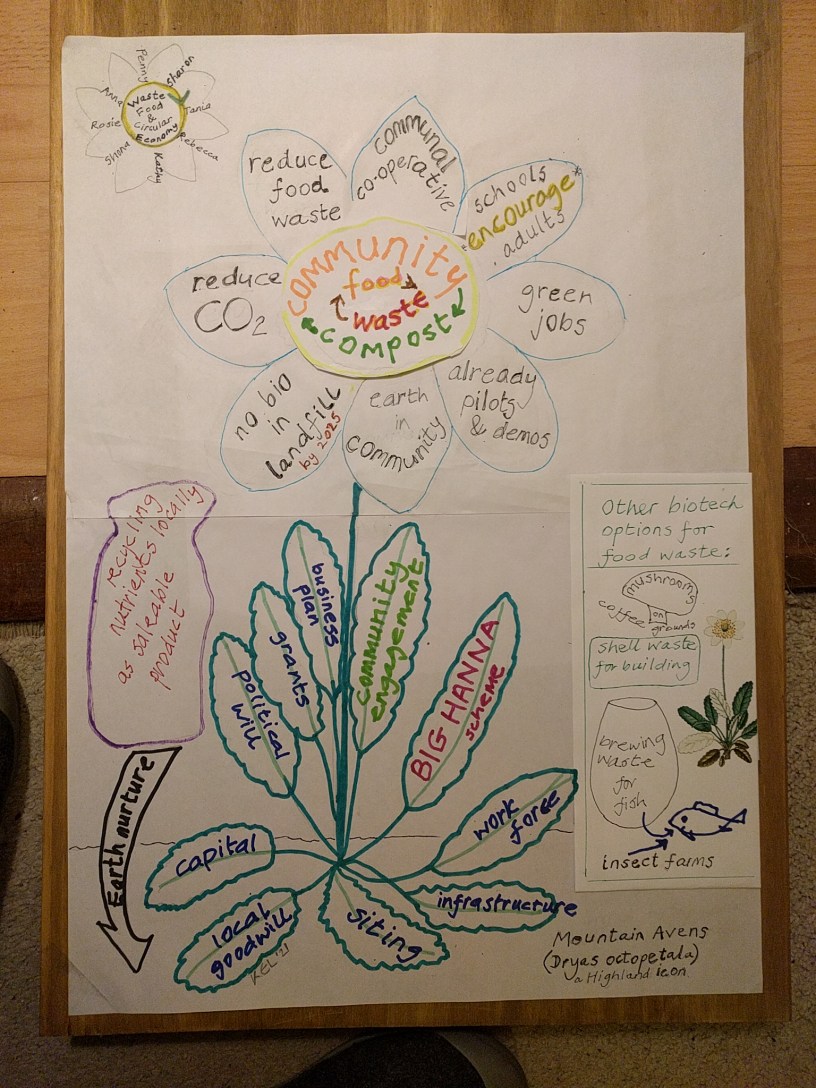 Penny
Sharon
Anna
Tania
Rosie
Rebecca
Shona
Kathy
Waste
Food
&
Circular
Economy
reduce
food
waste
communal
co-operative
schools
*encourage*
adults
reduce
CO2
COMMUNITY
food
waste
compost
green
jobs
no bio
in
landfill
by 2025
earth
in
community
already
pilots
& demos
recycling
nutrients locally
as saleable
product
business
plan
community
engagement
grants
political
will
BIG HANNA
scheme
work
force
capital
infrastructure
local
goodwill
siting
KEL '21
Earth nurture
Other biotech
options for
food waste:
mushrooms
on
coffee grounds
shell waste
for building
brewing
waste
for
fish
insect farms
Mountain Avens
(Dryas octopetala)
a Highland icon.